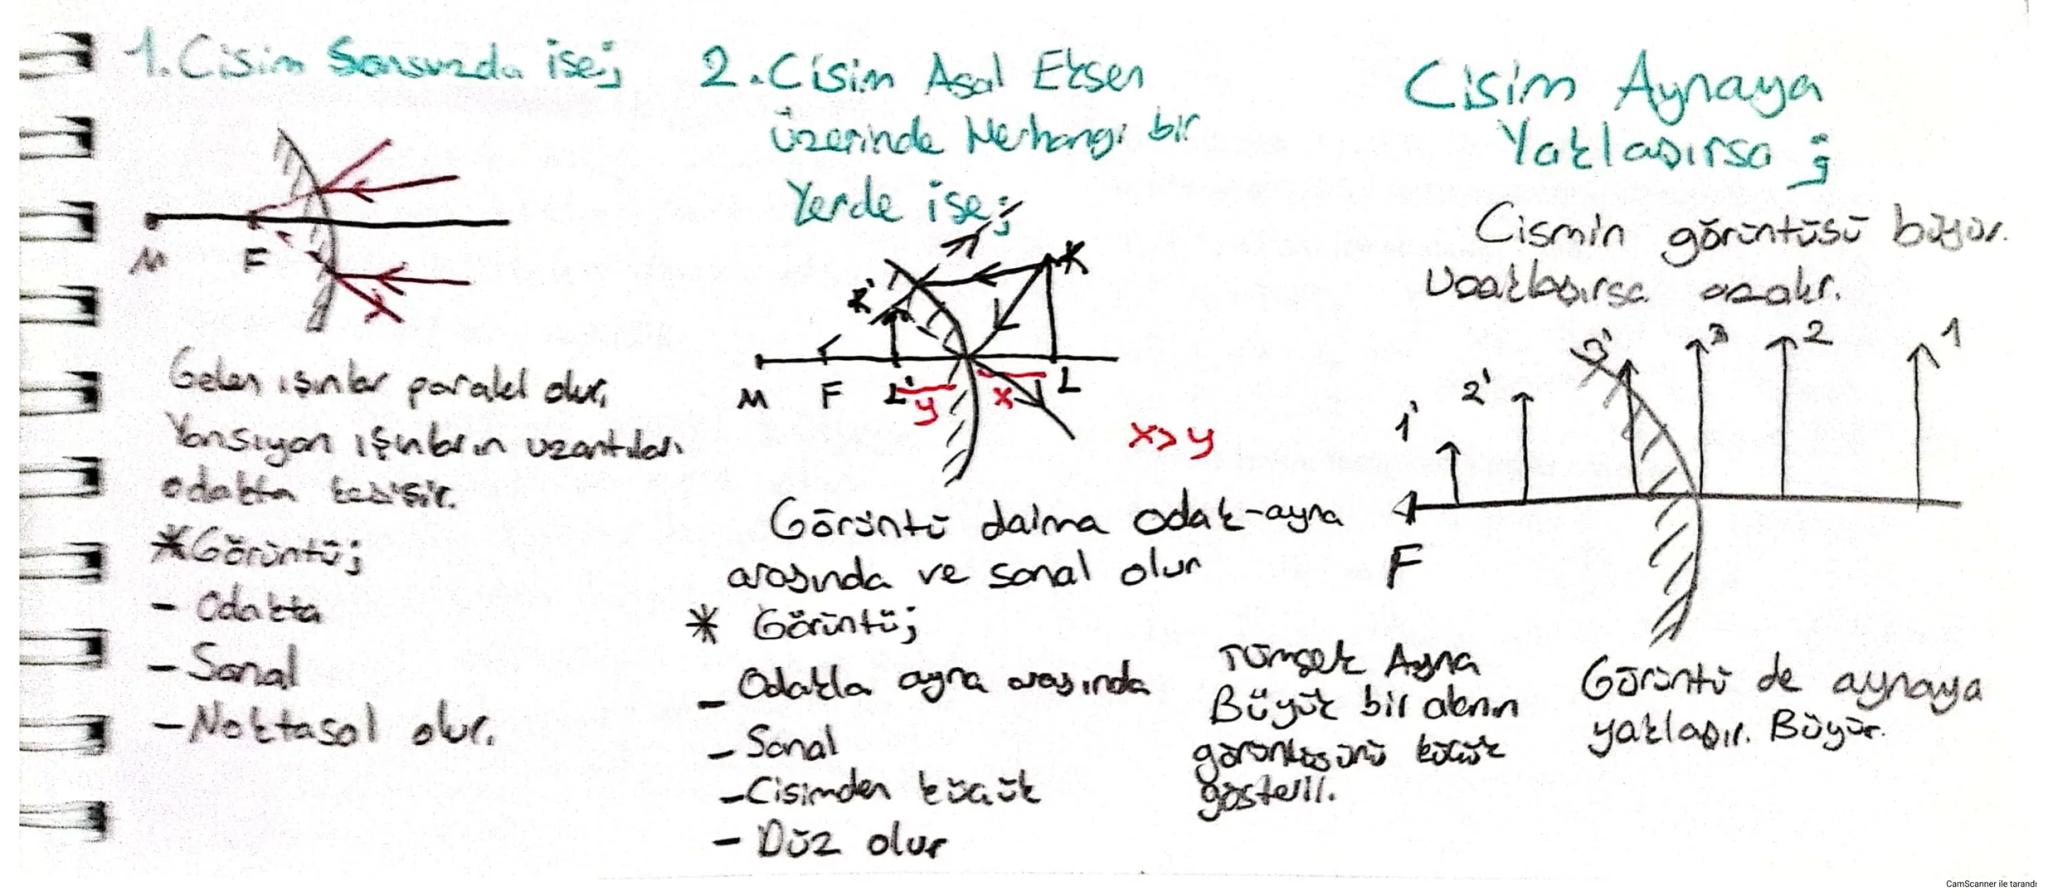 1. Cisim Sonsuzda ise;
M
F
Gelen ışınlar paralel olur,
Yansıyan ışınların uzantıları
odakta kesişir.
*Görüntü;
- Odakta
- Sanal
- Noktasal olur.
2. Cisim Asal Eksen
üzerinde Herhangi bir
Yerde ise;
K
K'
M F L' y x L
x>y
Görüntü daima odak-ayna
arasında ve sanal olur
* Görüntü;
- Odakla ayna arasında
- Sanal
- Cisimden küçük
- Düz olur
Cisim Aynaya
Yaklaşırsa ;
Cismin görüntüsü büyür.
Uzaklaşırsa azalır.
1' 2' 3' 3 2 1
F
Tümsek Ayna
Büyük bir alanın
görüntüsünü küçük
gösterir.
Görüntü de aynaya
yaklaşır. Büyür.
CamScanner ile tarandı